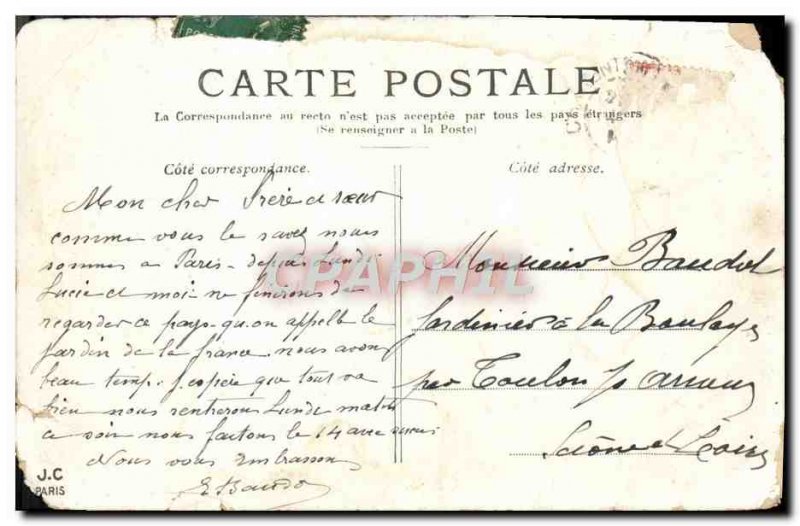 CARTE POSTALE
La Correspondance au recto n'est pas acceptée par tous les pays étrangers
(Se renseigner a la Poste)
Côté correspondance.
Côté adresse.
Mon cher frère et sœur
comme vous le savez nous
sommes a Paris - depuis Lundi
Lucie et moi ne finirons de
regarder ce pays qu'on appelle le
Jardin de la france nous avon
beau temp. J. espère que tout va
bien nous rentrerons Lundi matin
ce soir nous faitons le 14 avec
Nous vous Embrassons
E Baudo
Monsieur Baudot
Jardinier à la Boulaye
par Toulon s/ arroux
Saône et Loire
CPAPHIL
J.C
PARIS